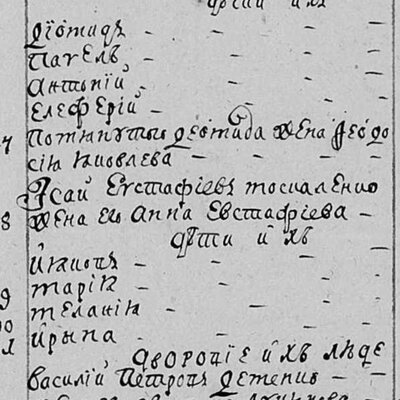 дѣти ихъ
Діомидъ –
Павелъ –
Антоній –
Елеферій –
7 Помянутого Деомида жена Ѳеодо
сія Яковлева –
Исай Евстафіевъ москаленко
8 жена его Анна Евстафіева –
дѣти и хъ
9 марія –
меланія –
ирына –
и хъ люде
василій Петровъ